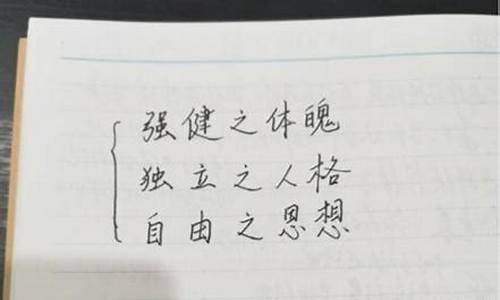 强健之体魄
独立之人格
自由之思想